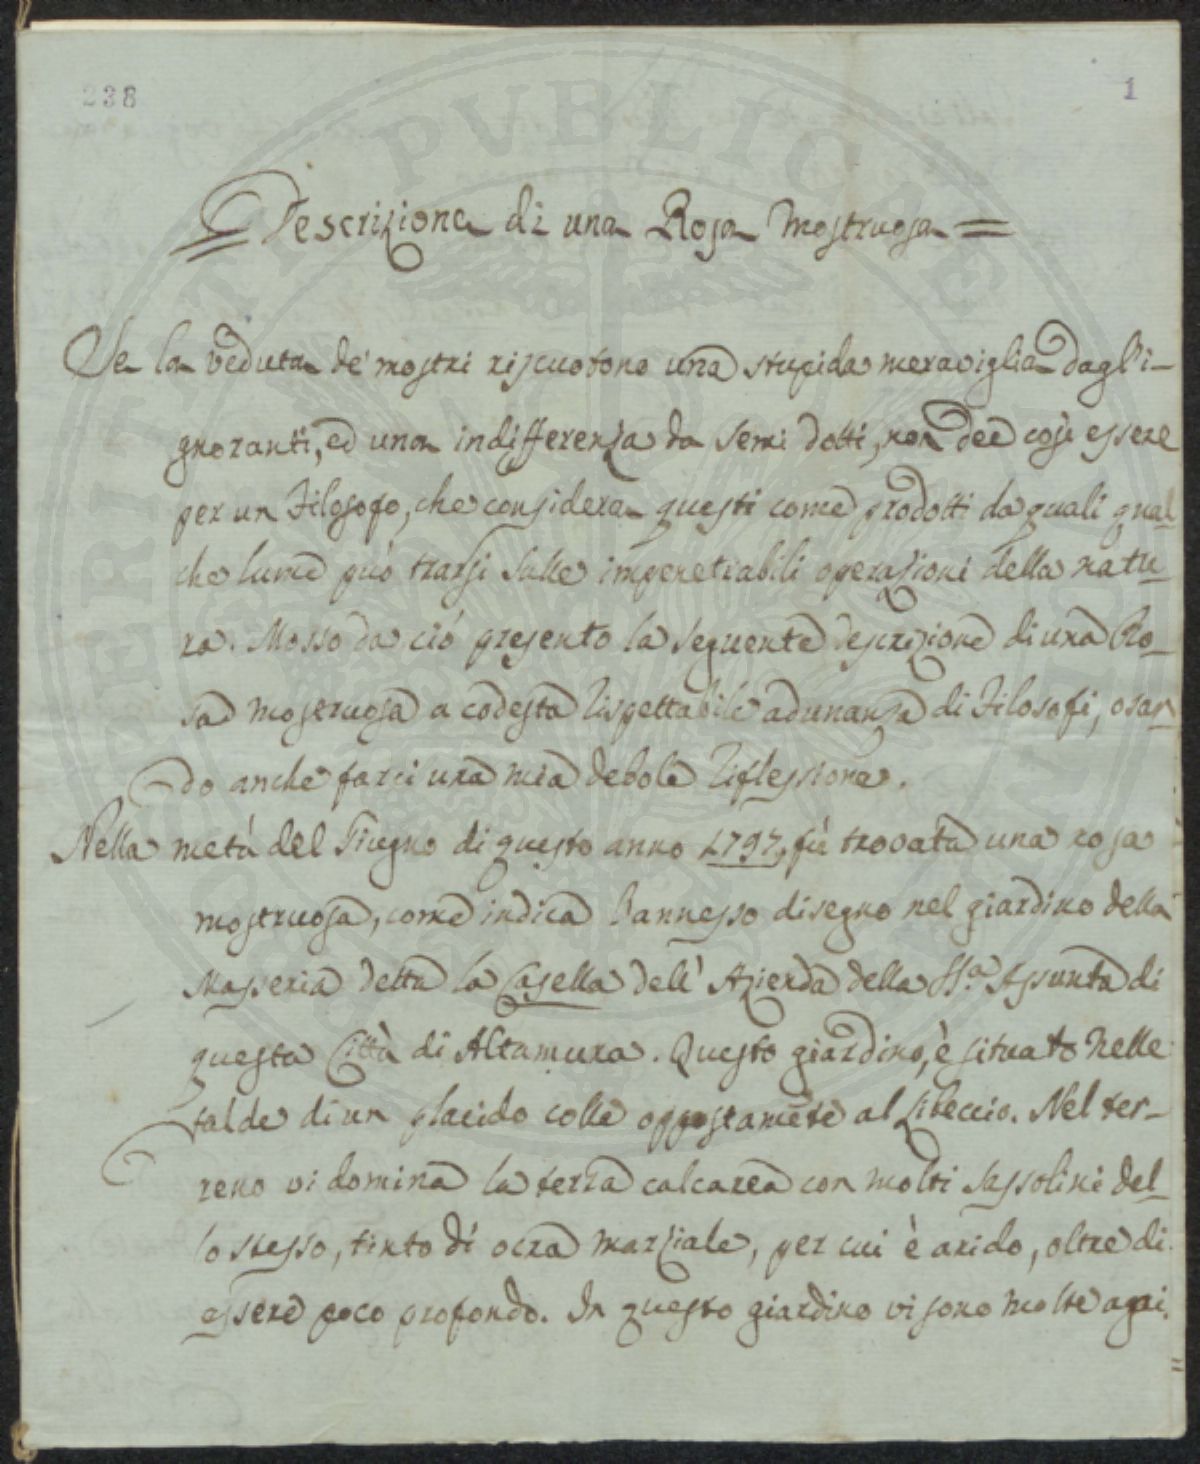 238
1
= Descrizione di una Rosa Mostruosa =
Se la veduta de' mostri riscuotono una stupida meraviglia dagl'i-
gnoranti, ed una indifferenza da Semi dotti, non dee così essere
per un Filosofo, che considera questi come prodotti da quali qual-
che lume può trarsi sulle impenetrabili operazioni della natu-
ra. Mosso da ciò presento la seguente descrizione di una Ro-
sa mostruosa a codesta rispettabile adunanza di Filosofi, osan-
do anche farci una mia debole riflessione.
Nella metà del Giugno di questo anno 1797, fù trovata una rosa
mostruosa, come indica l'annesso disegno nel giardino della
Masseria detta la Casella dell'Azienda della SS.a Assunta di
questa Città di Altamura. Questo giardino, è situato nelle
falde di un placido colle oppostamēte al libeccio. Nel ter-
reno vi domina la terra calcarea con molti sassolini del-
lo stesso, tinto di ocra marziale, per cui è arido, oltre di
essere poco profondo. In questo giardino vi sono molte api.
PVBLICAE